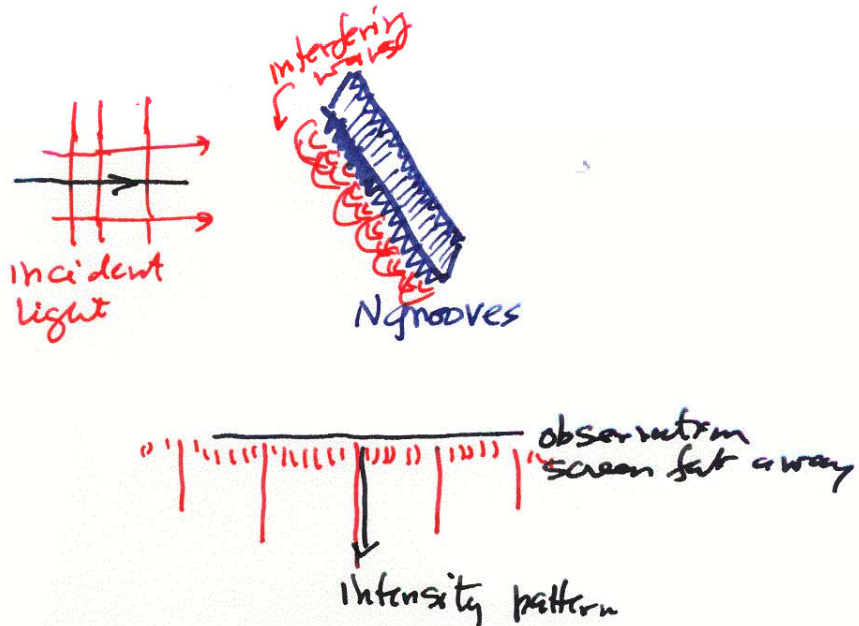 interfering
waves
incident
light
N grooves
observation
screen fat away
intensity pattern